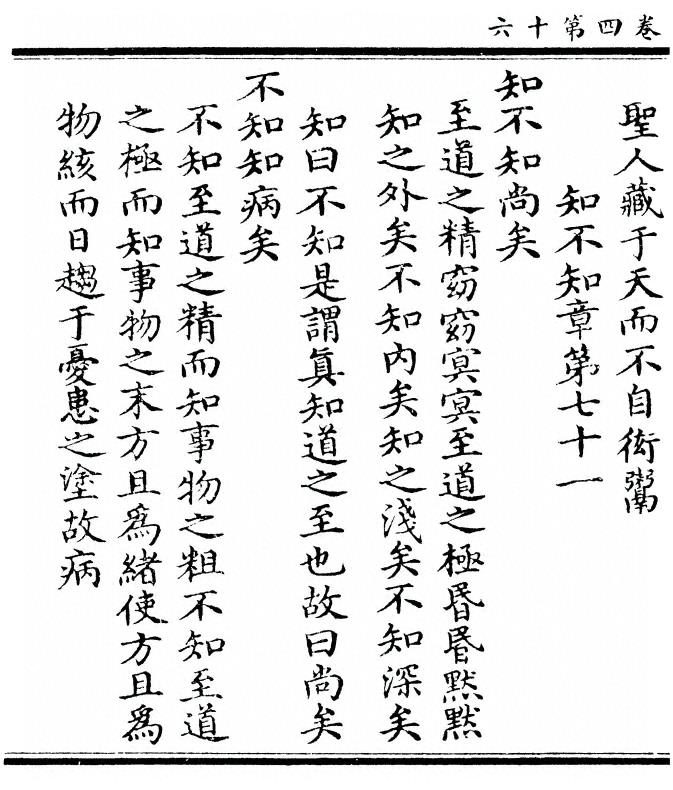 卷四第十六
聖人藏于天而不自衒鬻
知不知章第七十一
知不知尚矣
至道之精窈窈冥冥至道之極昏昏默默
知之外矣不知內矣知之淺矣不知深矣
知曰不知是謂眞知道之至也故曰尚矣
不知知病矣
不知至道之精而知事物之粗不知至道
之極而知事物之末方且爲緒使方且爲
物絯而日趨于憂患之塗故病